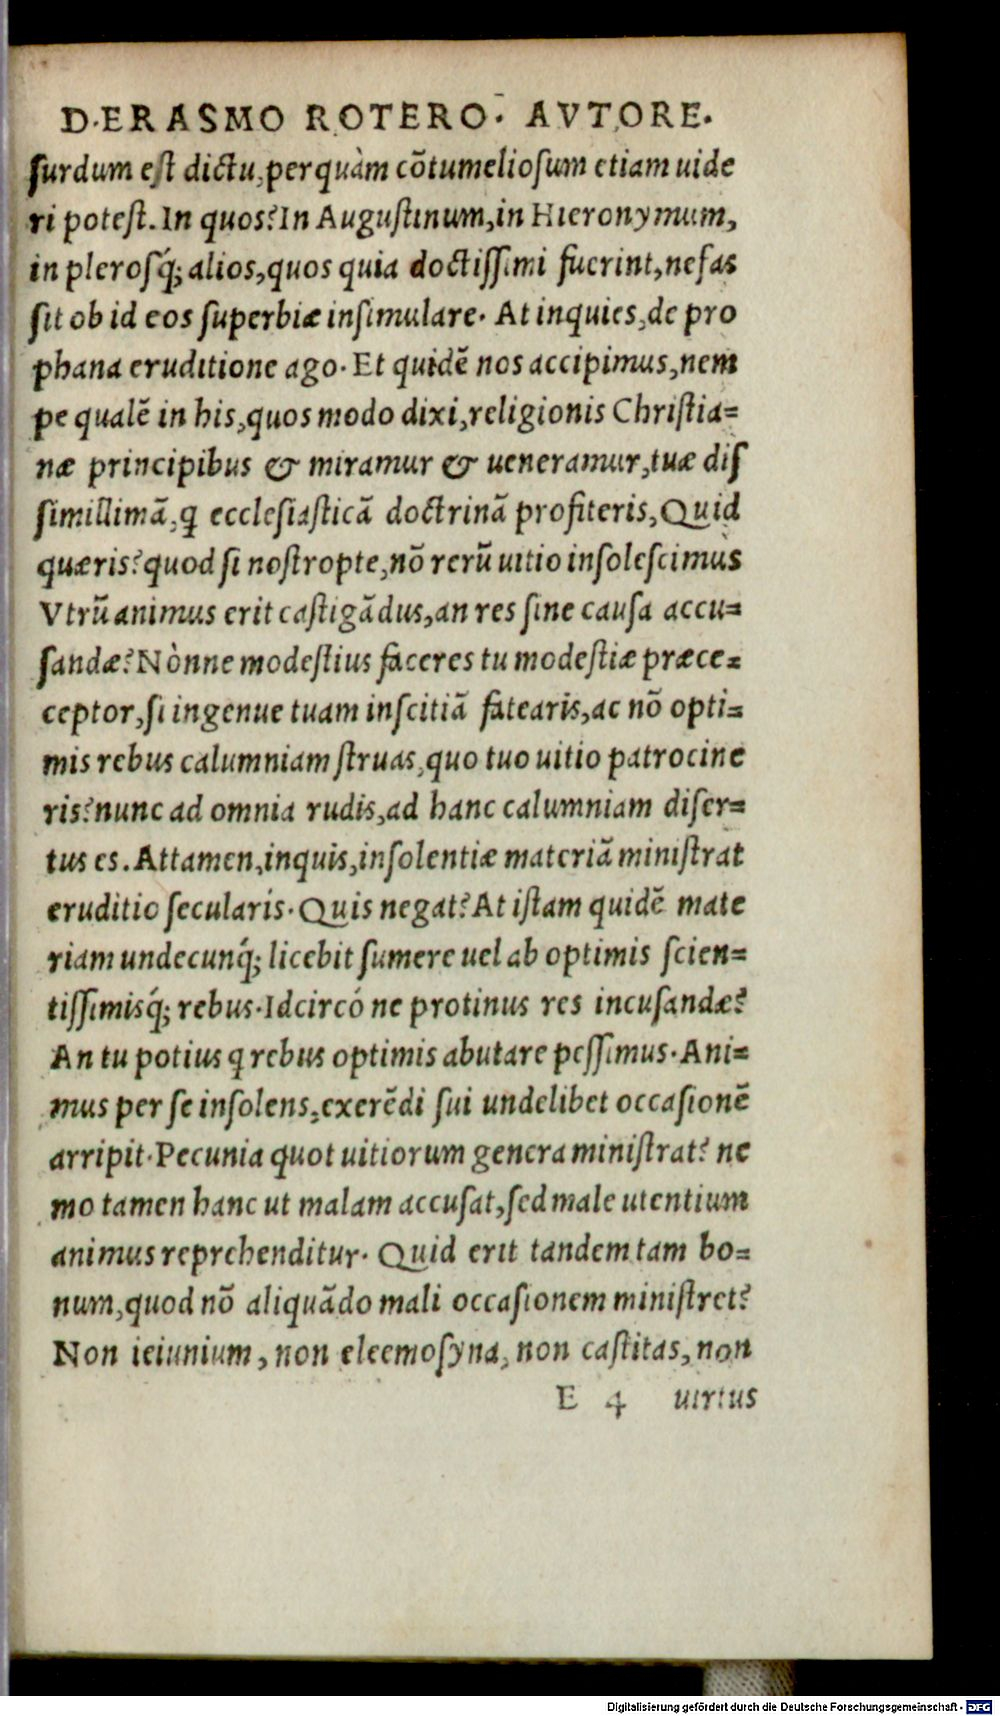 D. ERASMO ROTERO. AVTORE.
ſurdum eſt dictu, perquàm cõtumelioſum etiam uide
ri poteſt. In quos? In Auguſtinum, in Hieronymum,
in pleroſq́; alios, quos quia doctiſſimi fuerint, nefas
ſit ob id eos ſuperbiæ inſimulare. At inquies, de pro
phana eruditione ago. Et quidẽ nos accipimus, nem
pe qualẽ in his, quos modo dixi, religionis Chriſtia=
næ principibus & miramur & ueneramur, tuæ diſ
ſimillimã, ꝗ eccleſiaſticã doctrinã profiteris, Quid
quæris? quod ſi noſtropte, nõ rerũ uitio inſoleſcimus
Vtrũ animus erit caſtigãdus, an res ſine cauſa accu=
ſandæ? Nònne modeſtius faceres tu modeſtiæ præce=
ceptor, ſi ingenue tuam inſcitiã fatearis, ac nõ opti=
mis rebus calumniam ſtruas, quo tuo uitio patrocine
ris? nunc ad omnia rudis, ad hanc calumniam diſer=
tus es. Attamen, inquis, inſolentiæ materiã miniſtrat
eruditio ſecularis. Quis negat? At iſtam quidẽ mate
riam undecunq́; licebit ſumere uel ab optimis ſcien=
tiſſimisq́; rebus. Idcircó ne protinus res incuſandæ?
An tu potius ꝗ rebus optimis abutare peſſimus. Ani=
mus per ſe inſolens, exerẽdi ſui undelibet occaſionẽ
arripit. Pecunia quot uitiorum genera miniſtrat? ne
mo tamen hanc ut malam accuſat, ſed male utentium
animus reprehenditur. Quid erit tandem tam bo=
num, quod nõ aliquãdo mali occaſionem miniſtret?
Non ieiunium, non eleemoſyna, non caſtitas, non
E 4 uirtus
Digitalisierung gefördert durch die Deutsche Forschungsgemeinschaft - DFG